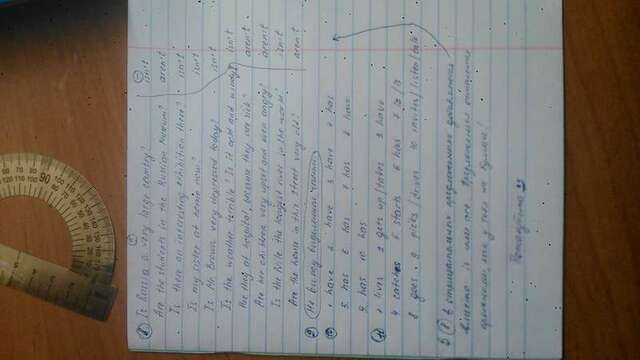 + −
8 Is Russia a very large country? isn't
Are the students in the Russian Museum? aren't
Is there an interesting exhibition there? isn't
Is my sister at home now? isn't
Is Mr Brown very depressed today? isn't
Is the weather terrible? Is it cold and windy? isn't
Are they at hospital, because they are sick? aren't
Are her children very upset and even angry? aren't
Is the Nile the longest river in the world? isn't
Are the house in this street very old? aren't
9 Не вижу видимой части
10 1 have 2 have 3 have 4 has
5 has 6 has 7 has 8 have
9 has 10 has
11 1 lives 2 gets up/takes 3 have
4 catches 5 starts 6 has 7 is/is
8 goes 9 picks/drives 10 invites/listen/talk
В 8 в отрицательных предложениях добавляется
вместо is или are. Предложения остальные
прежними, как у тебя на бумаге!
Пожалуйста